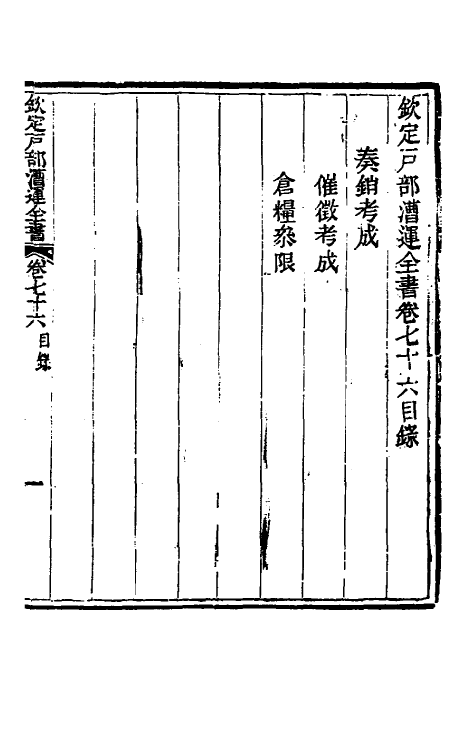 欽定戸部漕運全書卷七十六目錄
奏銷考成
催徵考成
倉糧叅限
欽定戸部漕運全書
卷七十六
目錄
一